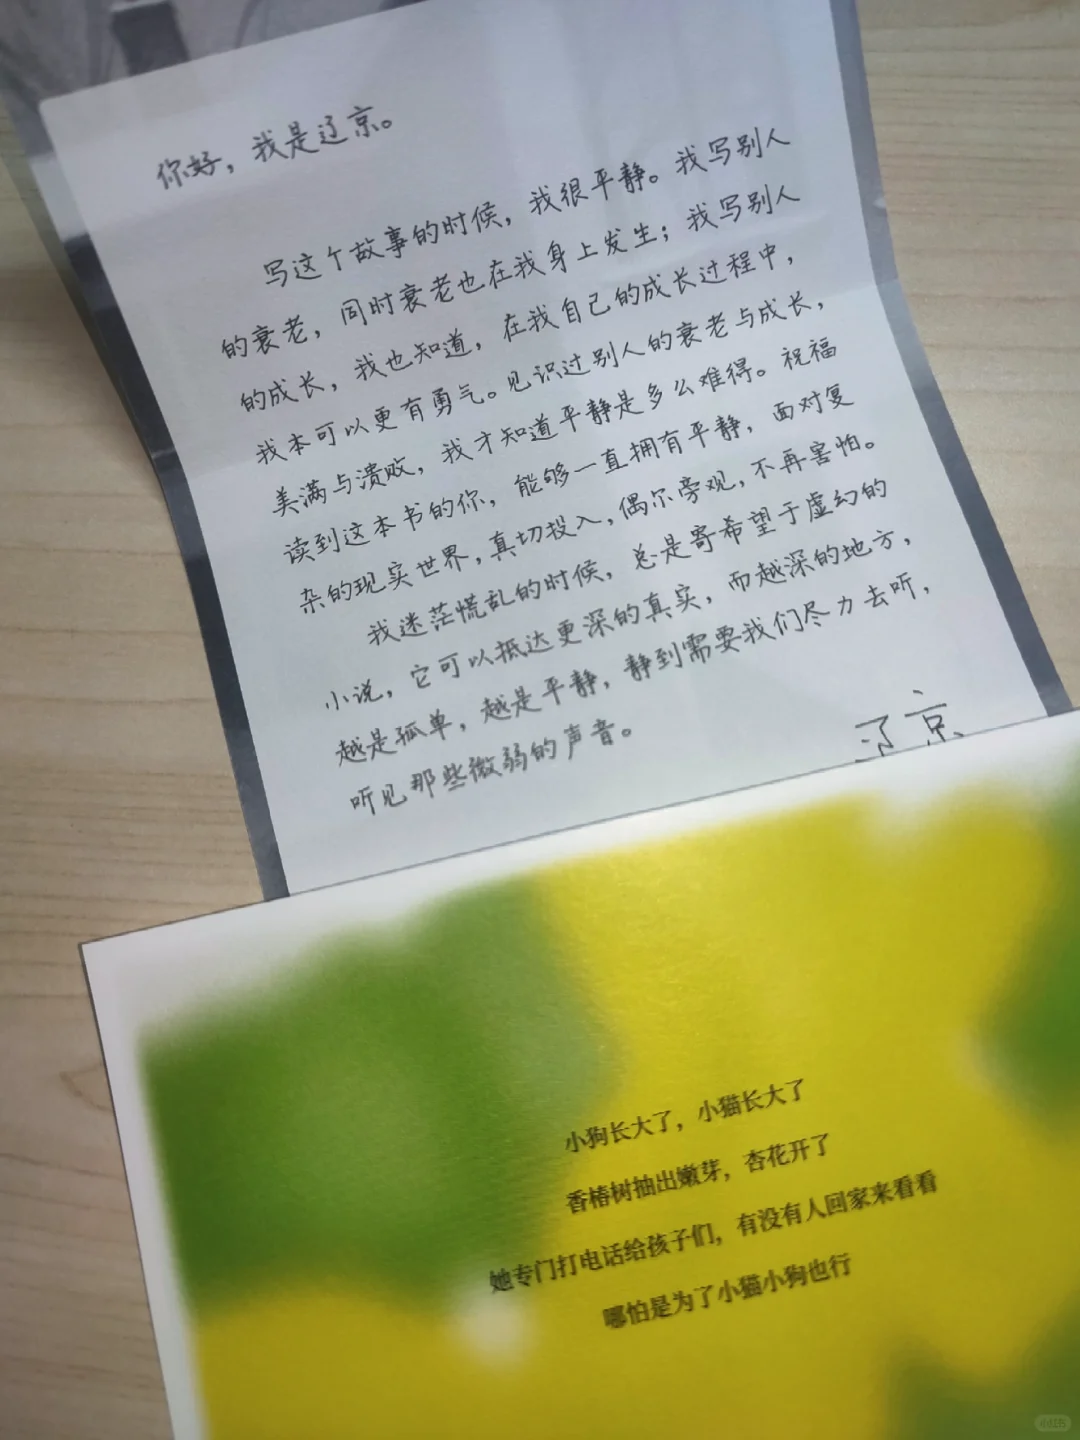 你好，我是辽京。
写这个故事的时候，我很平静。我写别人
的衰老，同时衰老也在我身上发生；我写别人
的成长，我也知道，在我自己的成长过程中，
我本可以更有勇气。见识过别人的衰老与成长，
美满与溃败，我才知道平静是多么难得。祝福
读到这本书的你，能够一直拥有平静，面对复
杂的现实世界，真切投入，偶尔旁观，不再害怕。
我迷茫慌乱的时候，总是寄希望于虚幻的
小说，它可以抵达更深的真实，而越深的地方，
越是孤单，越是平静，静到需要我们尽力去听，
听见那些微弱的声音。
辽京
小狗长大了，小猫长大了
香椿树抽出嫩芽，杏花开了
她专门打电话给孩子们，有没有人回家来看看
哪怕是为了小猫小狗也行
小红书